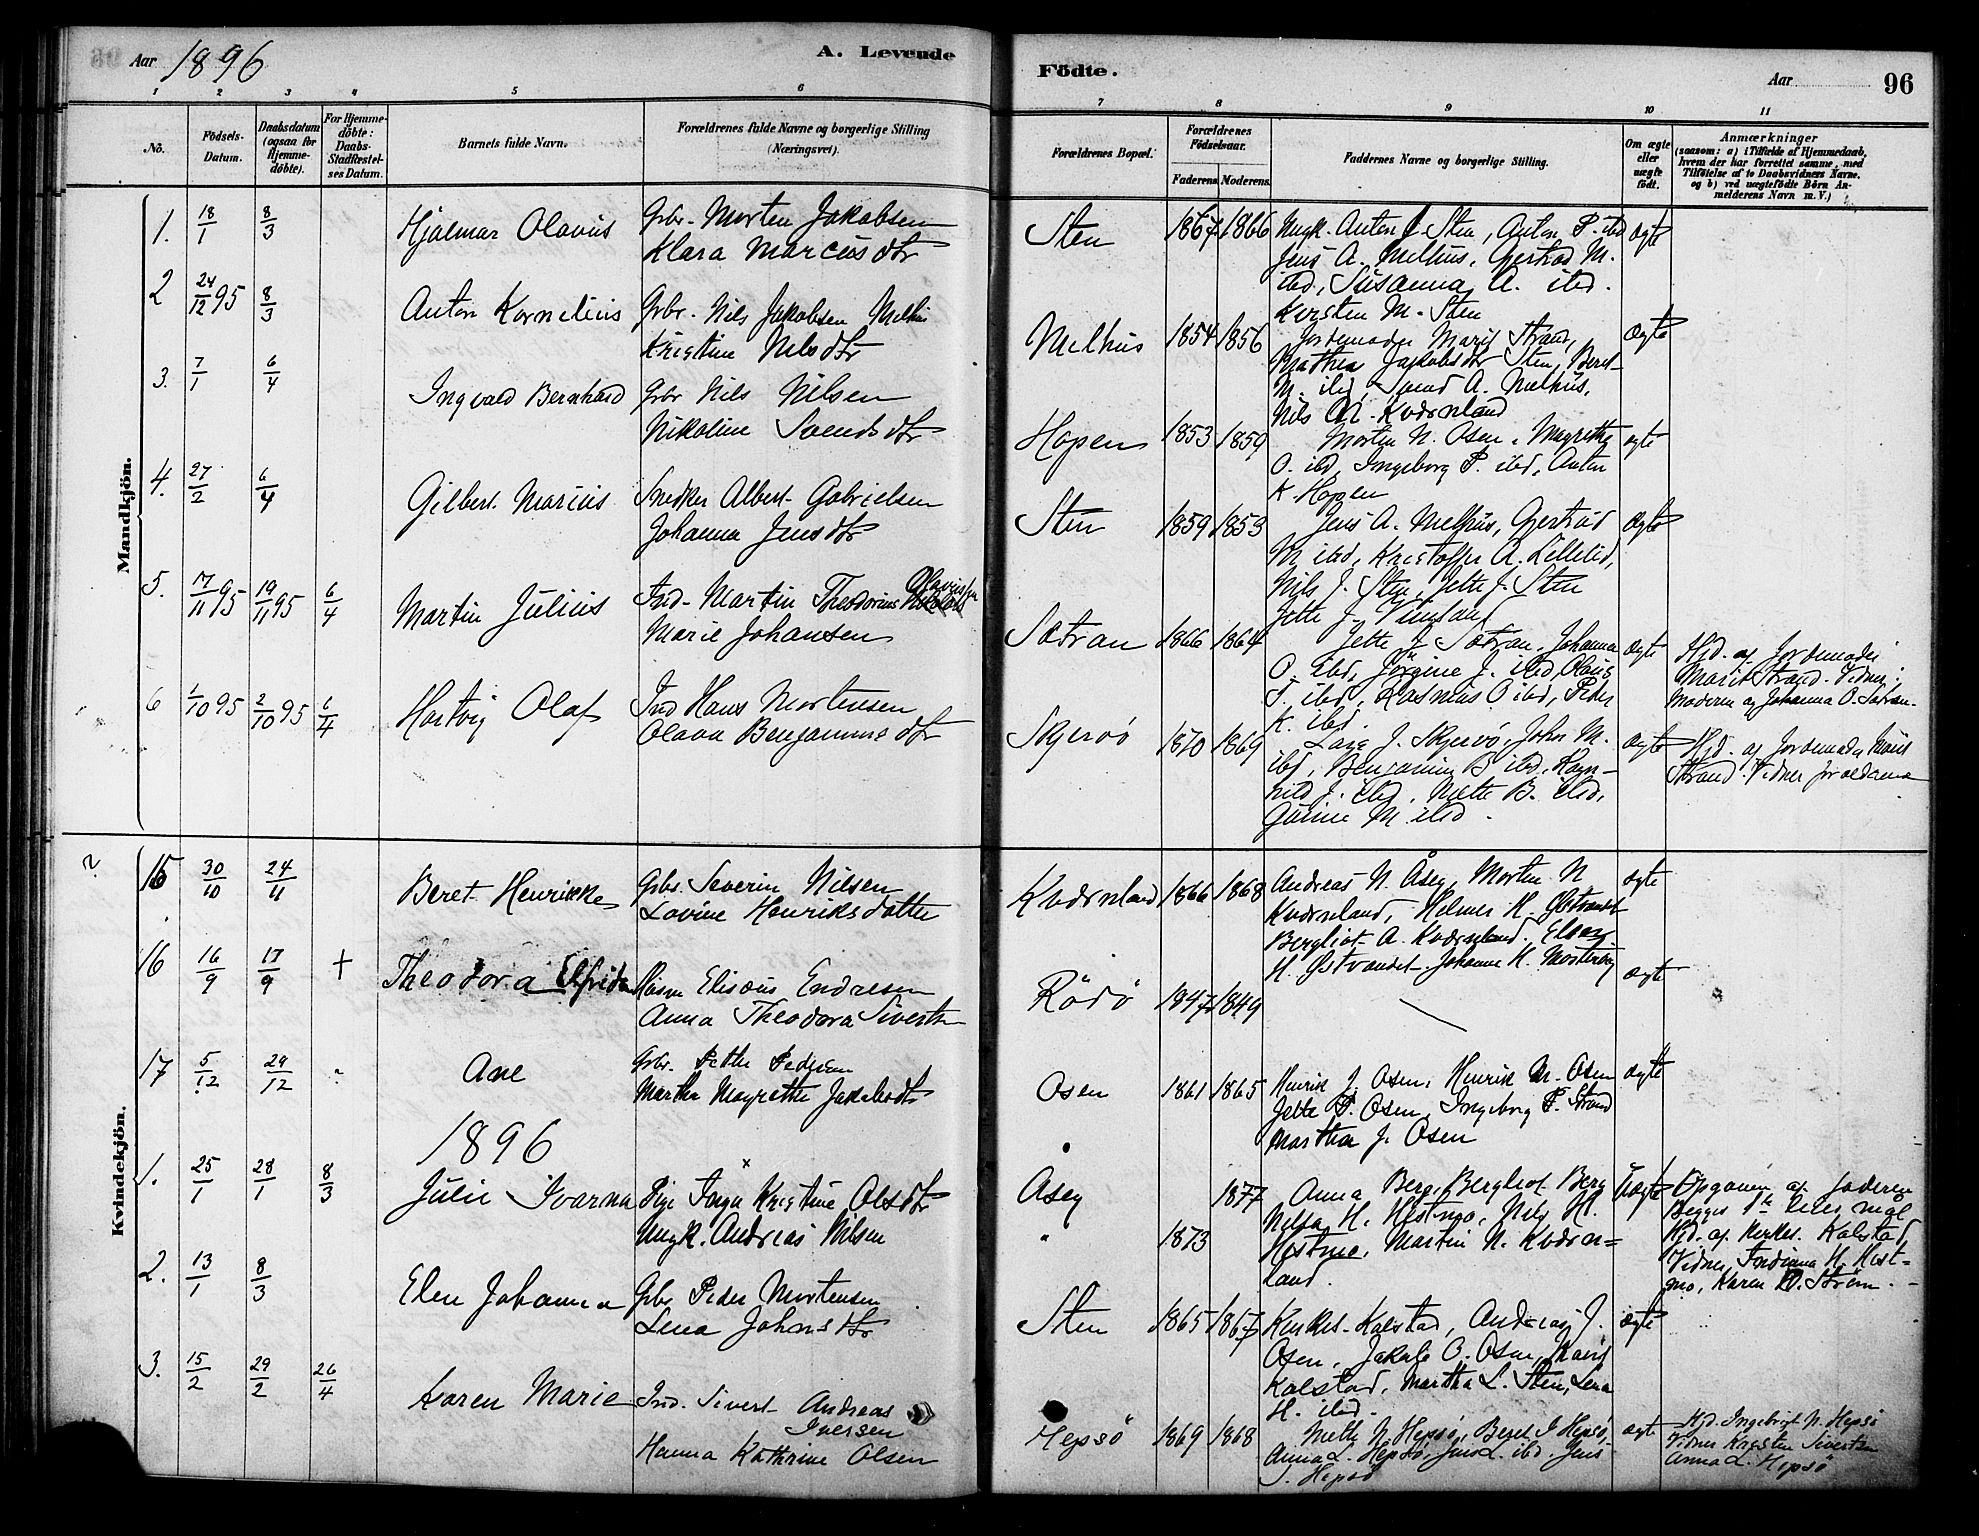 Aar 1896
A. Levende
Födte.
Aar
96
1 2 3 4 5 6 7 8 9 10 11
No.
Födsels-
Datum.
Daabsdatum
(ogsaa for
Hjemme-
döbte).
For Hjemme-
döbte:
Daabs-
Stadfæstel-
ses Datum.
Barnets fulde Navn.
Forældrenes fulde Navne og borgerlige Stilling
(Næringsvei).
Forældrenes Bopæl.
Forældrenes
Födselsaar.
Faderens Moderens
Faddernes Navne og borgerlige Stilling.
Om ægte
eller
uægte
födt.
Anmærkninger
(saasom: a) i Tilfælde af Hjemmedaab,
hvem der har forrettet samme, med
Tilföielse af to Daabsvidners Navne.
og b) ved uægtefödte Börn An-
melderens Navn m. V.)
Mandkjön.
1. 18/1 8/3 Hjalmar Olavus
Grbr. Morten Jakobsen
Klara Marcusdtr
Sten 1867 1866
Ungk. Anton J. Sten, Anton P. ibd
Jens A. Melhus, Gjertrud M.
ibd, Susanna A. ibd.
Kirsten M. Sten
ægte
2 24/12 95 8/3 Anton Kornelius
Grbr. Nils Jakobsen Melhus
Kristine Nilsdtr
Melhus 1854 1856
Jordemoder Marit Strand,
Mathea Jakobsdtr Sten, Beret
M. ibd, Svend A. Melhus,
Nils M. Kværnland
ægte
3. 7/1 6/4 Ingvald Bernhard
Grbr Nils Nilsen
Nikoline Svendsdtr
Hopen 1853 1859
Morten N. Osen, Magrethe
O. ibd, Ingeborg P. ibd, Anton
K. Hopen
ægte
4. 27/2 6/4 Gilbert Marius
Snedker Albert Gabrielsen
Johanna Jensdtr
Sten 1859 1853
Jens A. Melhus, Gjertrud
M ibd, Kristoffer A.
Nils J. Sten, Jette J. Sten
Jette J.
ægte
5. 17/11 95 19/11 95 6/4 Martin Julius
Ind. Martin Theodorius Olaviussen
Marie Johansen
Sætran 1866 1864
Jette J. Sætran, Johanna
O. ibd, Jörgine J. ibd, Olaus
J. ibd, Rasmus O ibd, Peder
K. ibd.
ægte
Hjd. af Jordemoder
Marit Strand. Vidner:
Moderen og Johanna O. Sætran.
6 1/10 95 2/10 95 6/4 Hartvig Olaf
Ind Hans Mortensen
Olava Benjaminsdtr
Skjervö 1870 1869
Lars J. Skjervö, John M.
ibd, Benjamin B ibd, Ragn-
hild J. ibd, Mette B. ibd,
Gurine M. ibd.
ægte
Hjd. af Jordemoder Marit
Strand. Vidner forældrene
Kvindekjön.
15 30/10 24/11 Beret Henrikke
Grbr. Severin Nilsen
Lovine Henriksdatter
Kværnland 1866 1868
Andreas N. Åseg, Morten N
Kværnland, Helmer H. Østvandet
Bergliot A. Kværnland, Elen
H. Østvandet, Johanne H.
ægte
16 16/9 17/9 + Theodora Elfrida
Elisæus Endresen
Anna Theodora Sivertsn
Rödö 1847 1849
ægte
17 5/12 29/12 Ane
Grbr. Petter Pedersen
Martha Magrethe Jakobsdtr
Osen 1861 1865
Henrik J. Osen, Henrik M. Osen
Jette P. Osen, Ingeborg P. Strand
Martha J. Osen
ægte
1896
1. 25/1 28/1 8/3 Julie Ivarna
Pige Inga Kristine Olsdtr
Ungk. Andreas Nilsen
Aseg 1877
" 1873
Anna Berg, Bergliot Berg
H. Hestmo, Nils H.
Hestmo, Martin N. Kværn-
land.
Uægte
Opgaven af faderen
Begges 1ste Leierm​aal
Hjd. af Kirkes. Kalstad,
Vidner, Indianna H. Hest-
mo, Karen O. Ström.
2. 13/1 8/3 Elen Johanna
Grbr Peder Mortensen
Lena Johnsdtr
Sten 1865 1867
Kirkes. Kalstad, Andreas J.
Osen, Jakob O. Osen, Marit
Kalstad, Martha L. Sten, Lena
H. ibd.
ægte
3. 15/2 29/2 26/4 Karen Marie
Ind. Sivert Andreas
Iversen
Hanna Kathrine Olsen
Hepsö 1869 1868
Mette N. Hepsö, Beret I Hepsö,
Anna L. Hepsö, Jens L. ibd. Jens
J. Hepsö
ægte
Hjd. Ingebrigt N. Hepsö
Vidner Karsten Sivertsen
Anna L. Hepsö